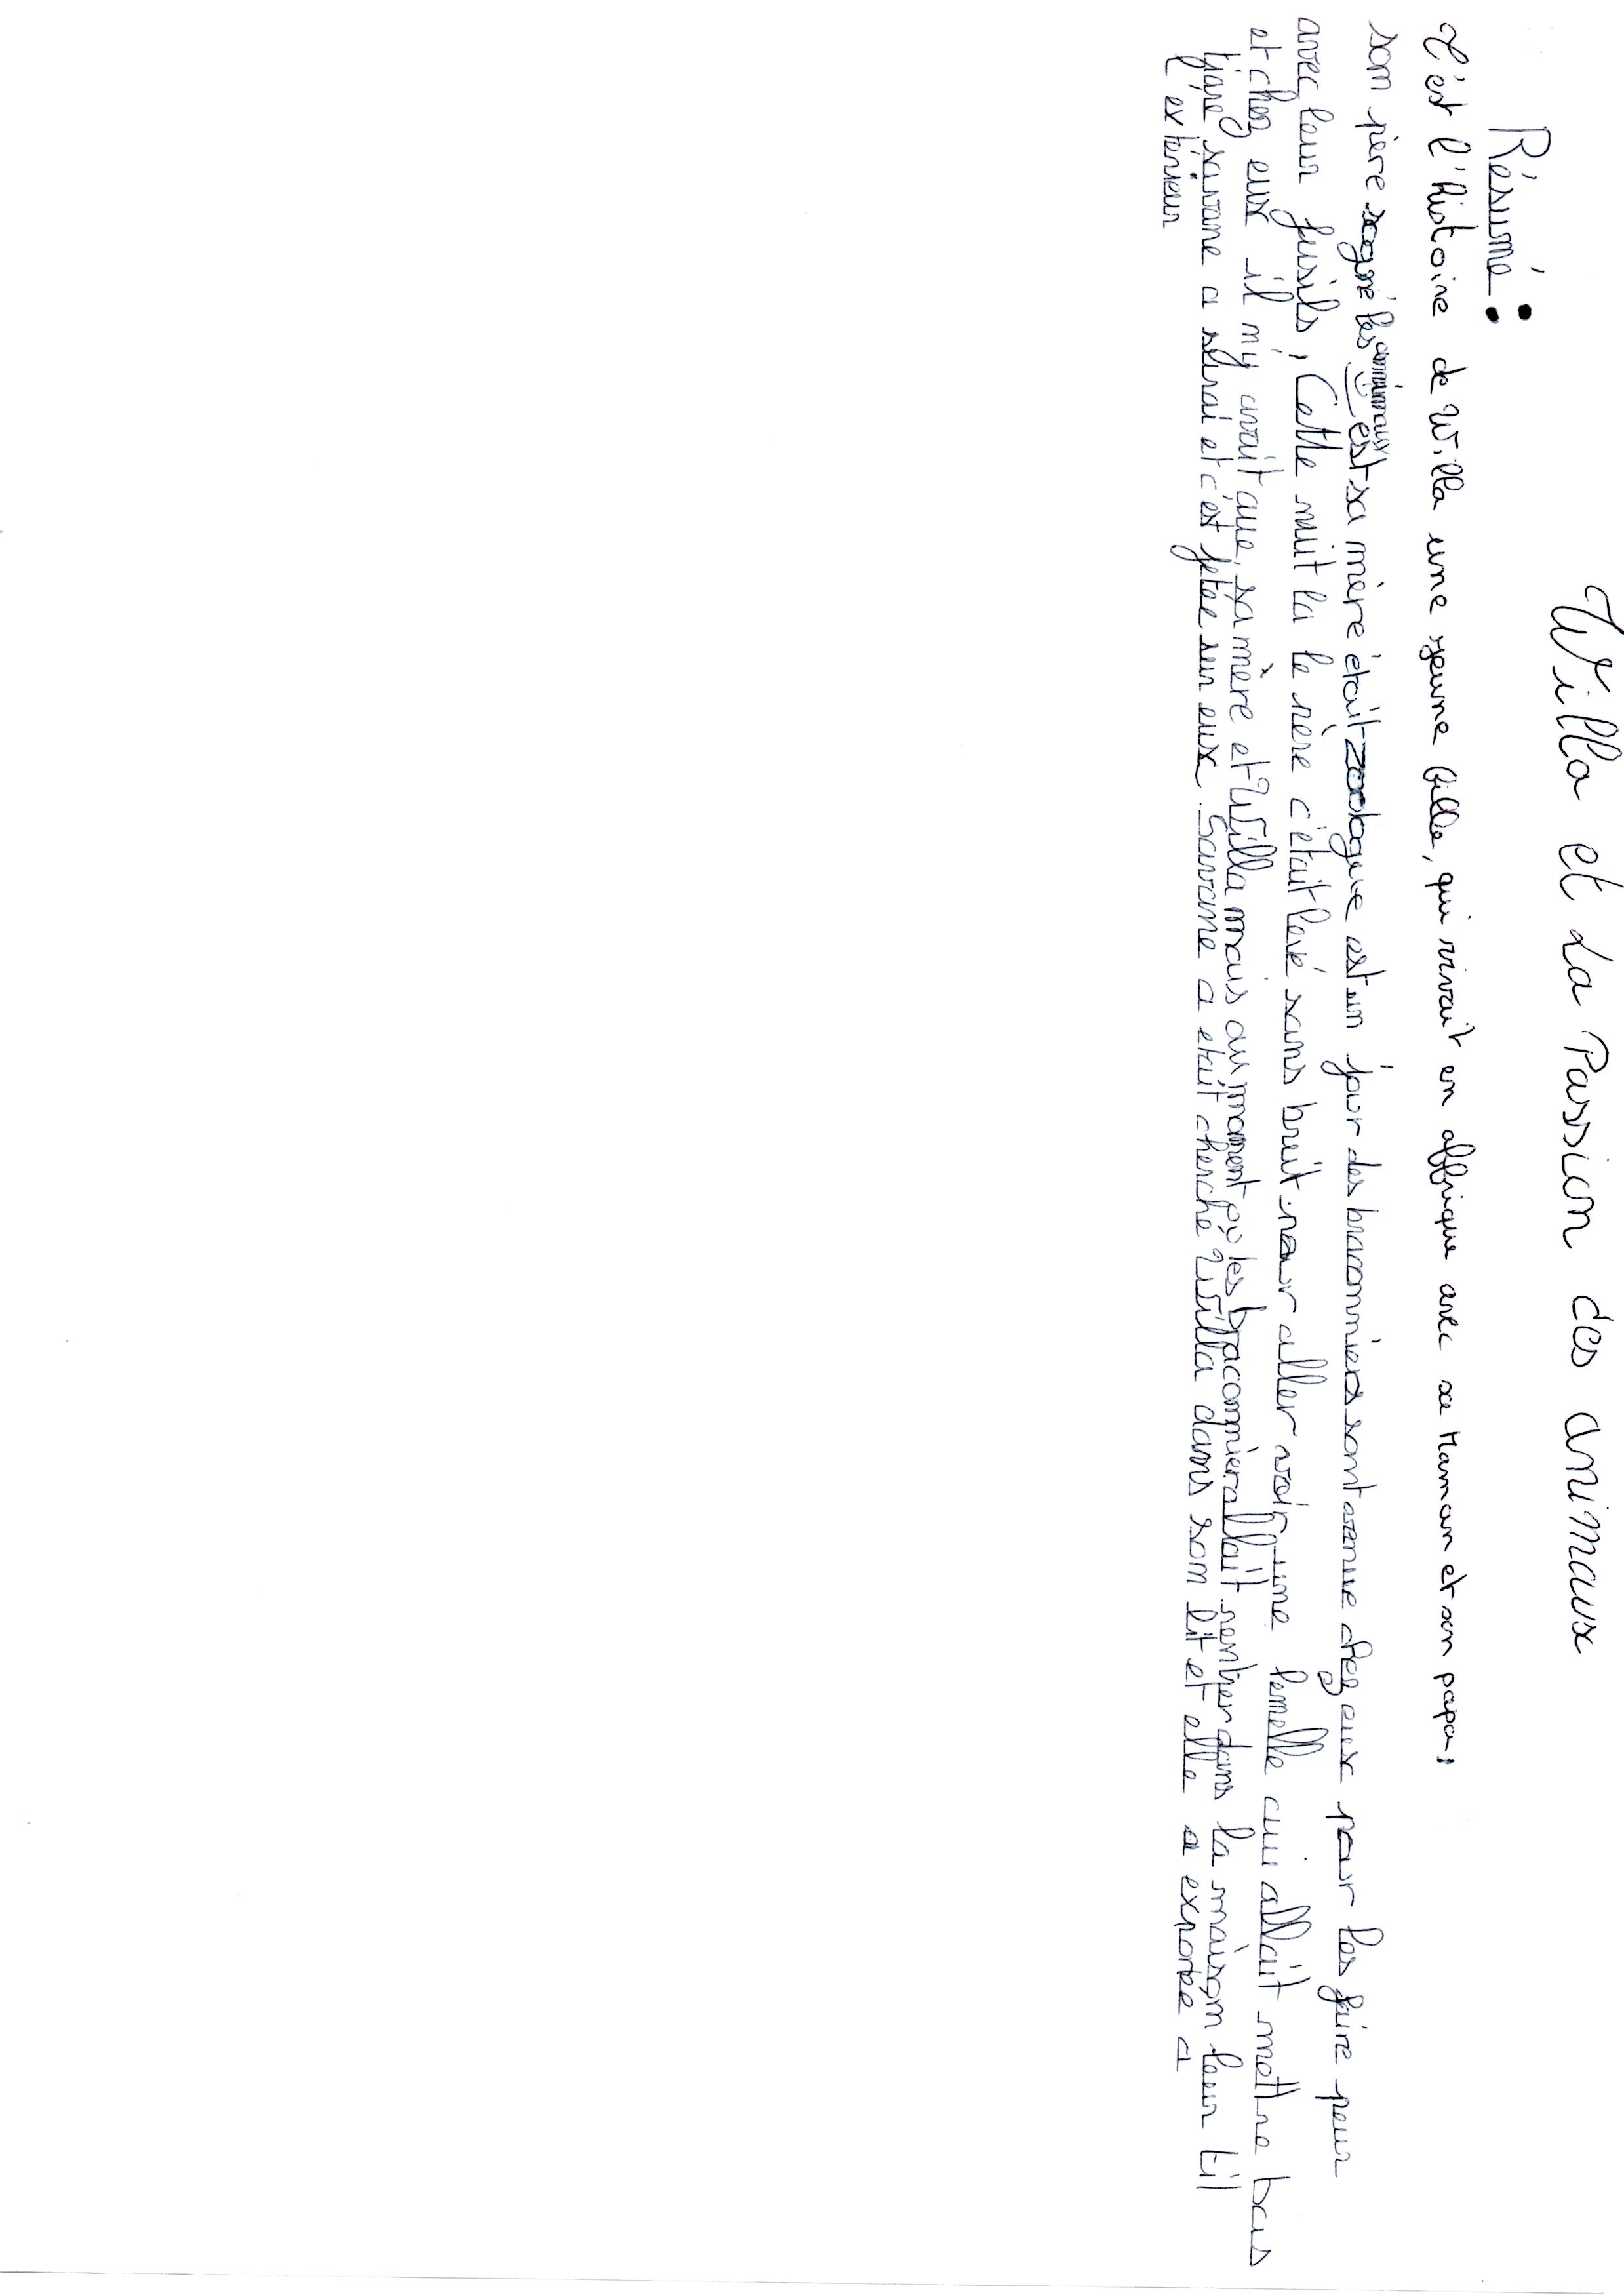 Willa et La Passion des animaux
Résumé :
C'est l'histoire de Willa une jeune fille, qui vivait en affrique avec sa Maman et son papa,
son père sogné les animaux est sa mère était zoologue est un jour des braconniers sont venue chez eux pour les faire peur
avec leur fusils, Cette nuit la le père c'était levé sans bruit pour aller voir une femelle qui allait mettre bas
et chez eux il my avait que, sa mère et Willa mais au moment où les braconnier allait rentrer dans la maison leur til
tigre savane a surgi et c'est jetée sur eux. Savane a etait cherché Willa dans son lit et elle a exportée a
l'extérieur